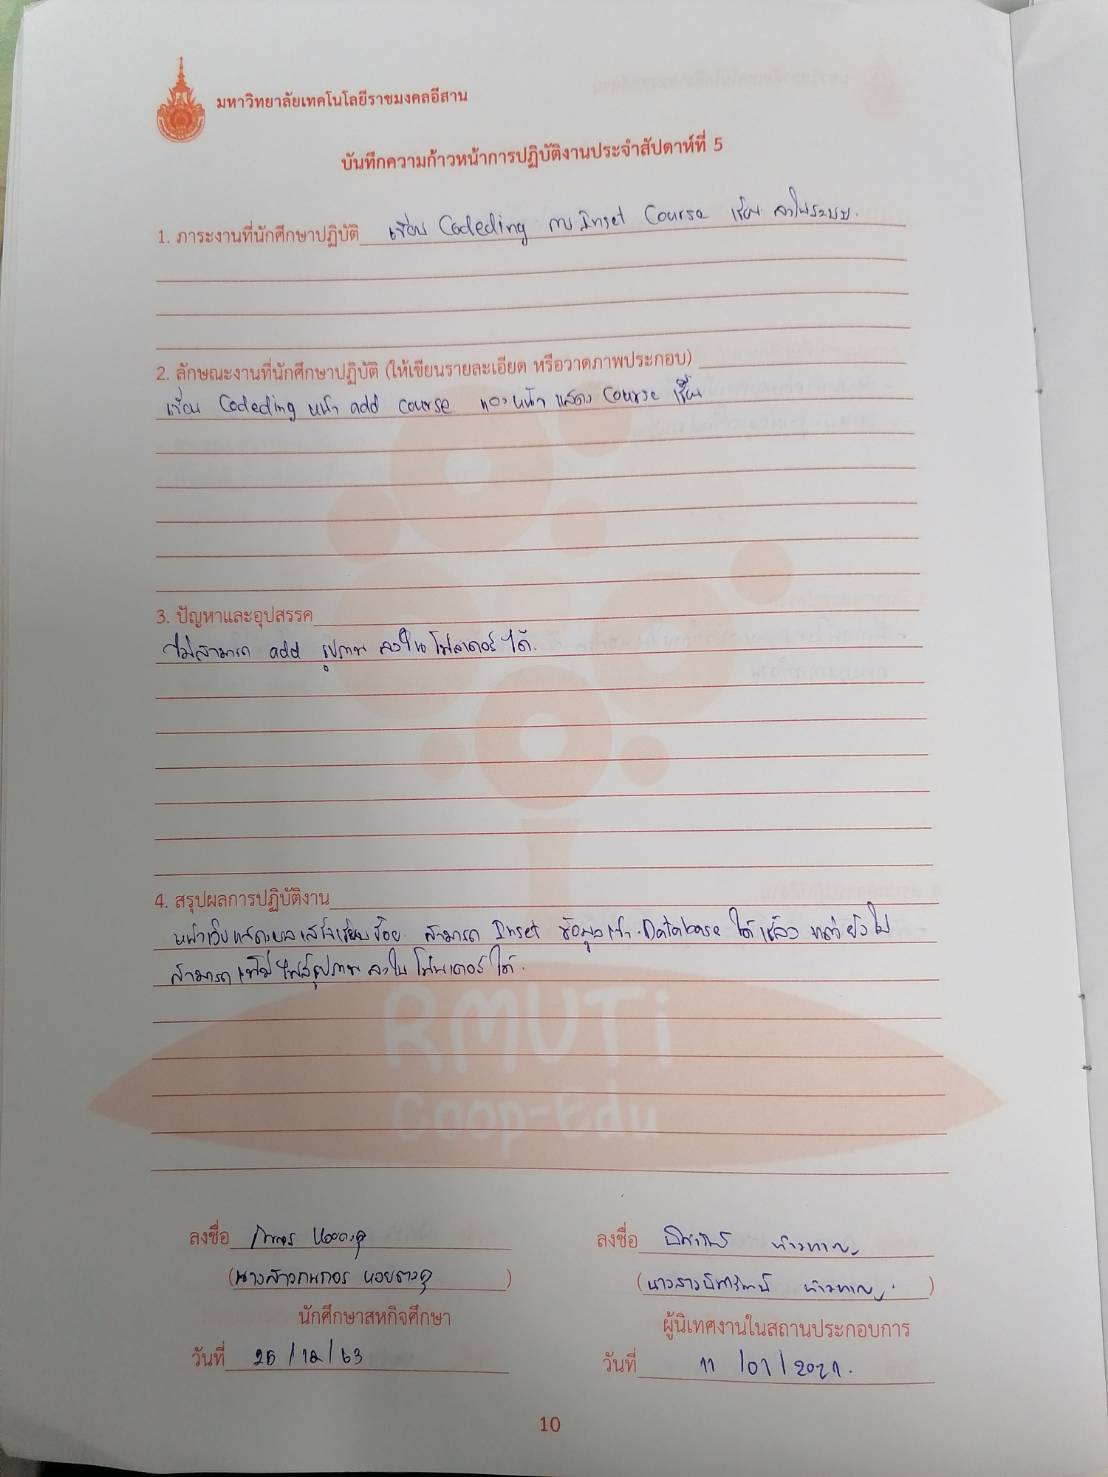 มหาวิทยาลัยเทคโนโลยีราชมงคลอีสาน
บันทึกความก้าวหน้าการปฏิบัติงานประจำสัปดาห์ที่ 5
1. ภาระงานที่นักศึกษาปฏิบัติ เขียน Codeding การ Inset Course เรียน ลงในระบบ.
2. ลักษณะงานที่นักศึกษาปฏิบัติ (ให้เขียนรายละเอียด หรือวาดภาพประกอบ)
เขียน Codeding หน้า add course และ หน้า แสดง Course เรียน
3. ปัญหาและอุปสรรค
ไม่สามารถ add รูปภาพ ลงใน โฟลเดอร์ ได้.
4. สรุปผลการปฏิบัติงาน
หน้าเว็บ แสดงผล เสร็จเรียบร้อย สามารถ Inset ข้อมูลเข้า Database ได้ แล้ว แต่ ยังไม่
สามารถ เพิ่ม ไฟล์รูปภาพ ลงใน โฟลเดอร์ ได้.
RMUTi
Coop-Edu
ลงชื่อ
ลงชื่อ
(นางสาว )
(นางสาว )
นักศึกษาสหกิจศึกษา
ผู้นิเทศงานในสถานประกอบการ
วันที่ 25/12/63
วันที่ 11/01/2021.
10